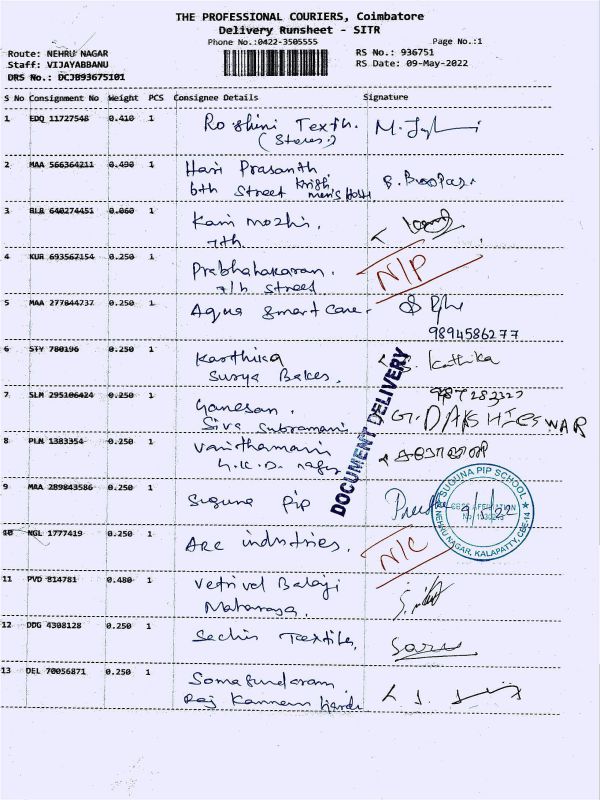 THE PROFESSIONAL COURIERS, Coimbatore
Delivery Runsheet - SITR
Phone No.:0422-3505555
Page No.:1
Route: NEHRU NAGAR
Staff: VIJAYABBANU
DRS No.: DCJB93675101
RS No.: 936751
RS Date: 09-May-2022
S No Consignment No Weight PCS Consignee Details Signature
1 EDQ 11727548 0.410 1 Roshini Textile.
(Stores.)
2 MAA 566364211 0.490 1 Hari Prasanth
6th Street Krish men's Hostel
3 BLR 640274451 0.060 1 Kani mozhi.
7th
4 KUR 693567154 0.250 1 Prabhahakaran. N/P
7th street
5 MAA 277844737 0.250 1 Aqua smart care.
9894586277
6 STY 780196 0.250 1 Karthika
Surya Bakes.
7 SLM 295106424 0.250 1 Ganesan.
Siva Subramani G.DAKSHIESWAR
8 PLN 1383354 0.250 1 Vanithamani
G.K.D. nagar
DOCUMENT DELIVERY
9 MAA 289843586 0.250 1 Suguna Pip 9/5/22
SUGUNA PIP SCHOOL
NEHRU NAGAR, KALAPATTY, CBE-14
10 NGL 1777419 0.250 1 Arc industries. N/C
11 PVD 814781 0.480 1 Vetrivel Balaji
Maharaja.
12 DDG 4308128 0.250 1 Sachin Textiles
13 DEL 70056871 0.250 1 Somasundaram
Raj Kannam